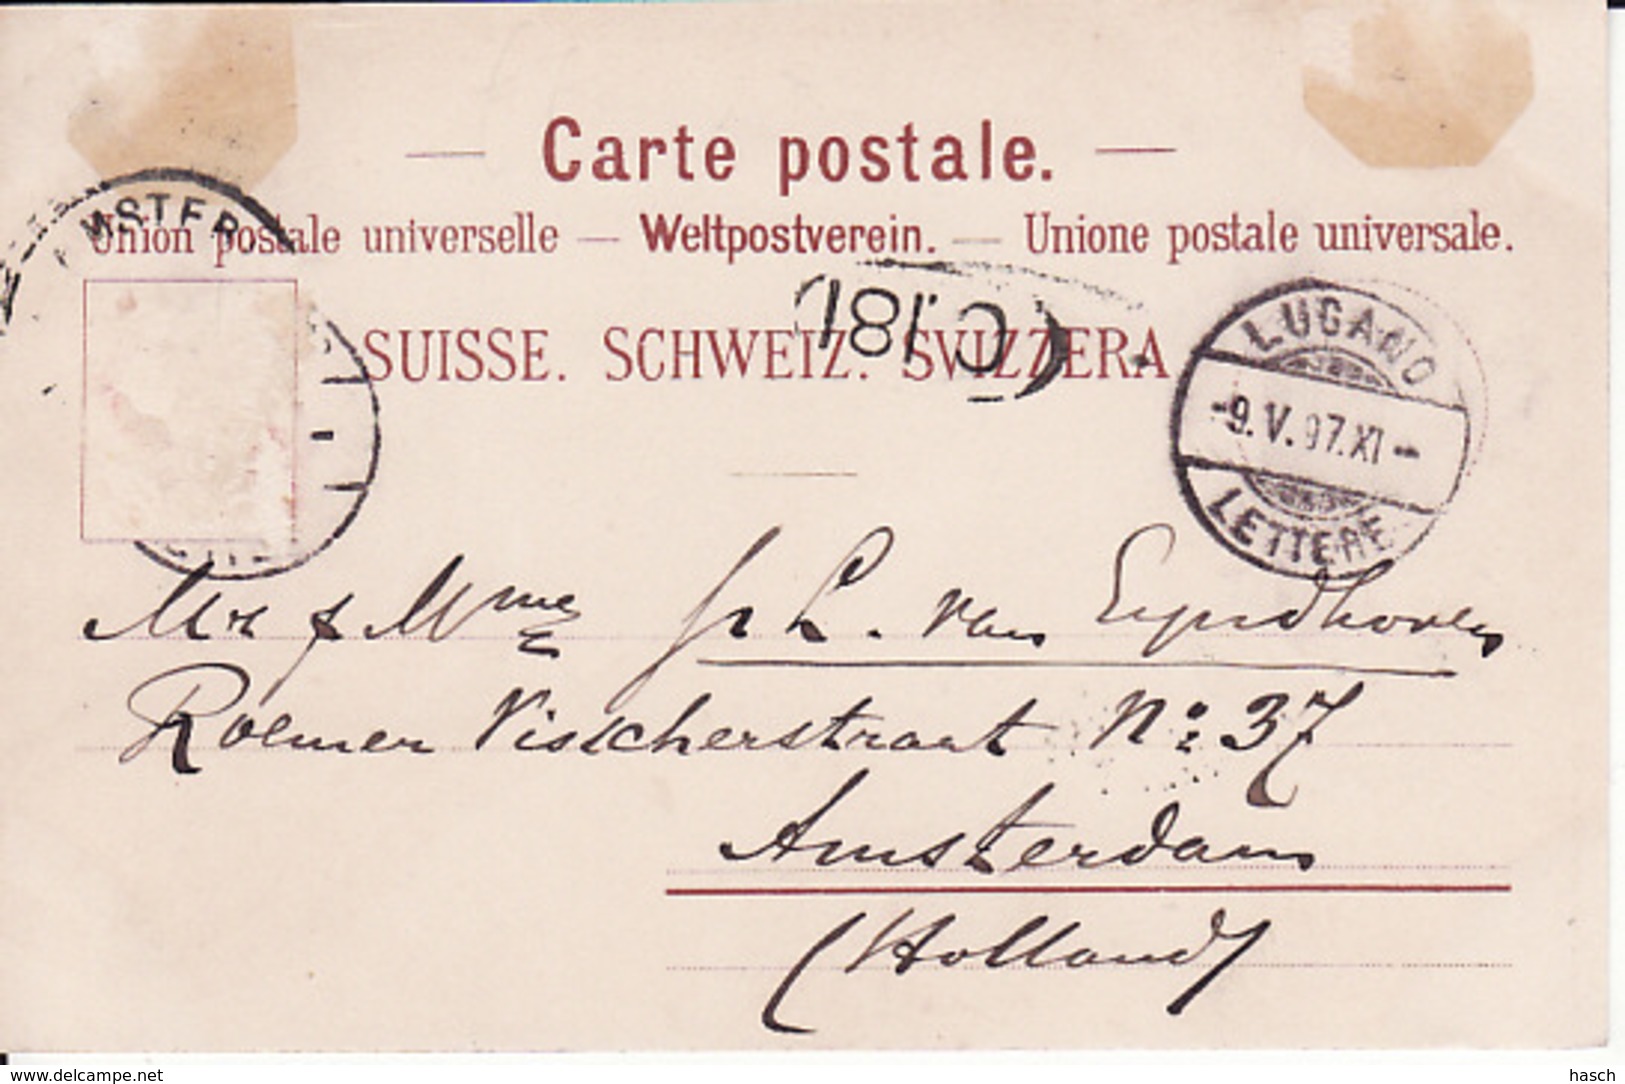 Carte postale.
Union postale universelle — Weltpostverein. — Unione postale universale.
SUISSE. SCHWEIZ. SVIZZERA
MSTER
LUGANO
-9.V.97.XI-
LETTERE
Mr & Mme L. van Eyndhoven
Roemer Visscherstraat No: 37
Amsterdam
(Holland)
www.delcampe.net
hasch